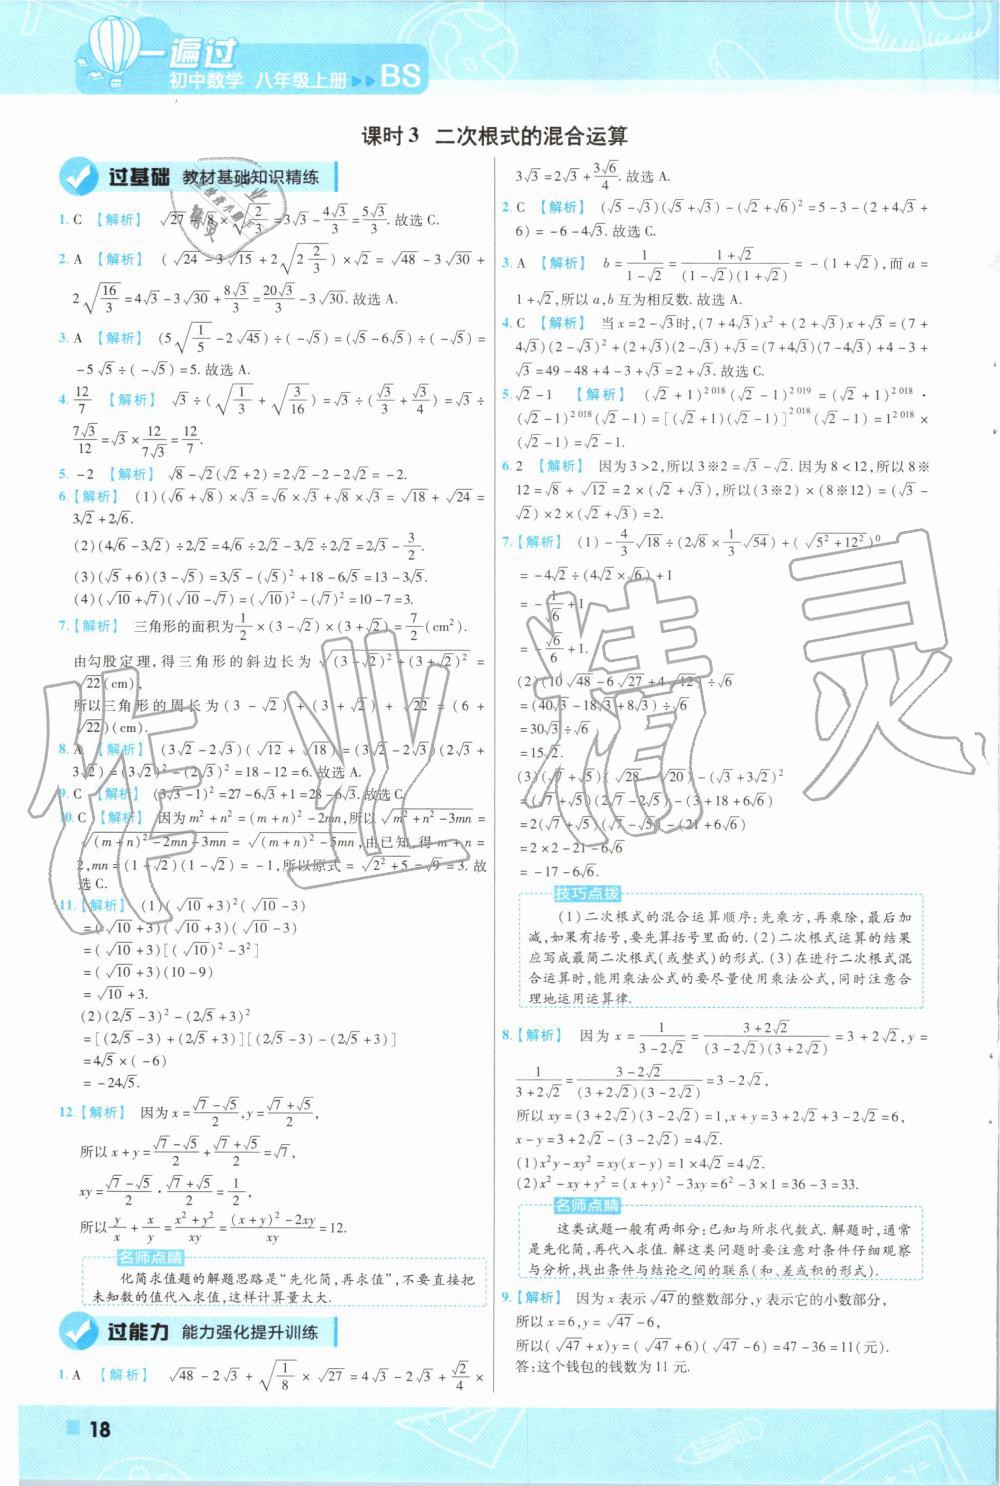 一遍过
初中数学 八年级上册 ▶▶ BS
课时3 二次根式的混合运算
过基础 教材基础知识精练
1. C 【解析】 √27-√8×√(2/3)=3√3-4√3/3=5√3/3.故选C.
2. A 【解析】 (√24-3√15+2√(2 2/3))×√2=√48-3√30+
2√(16/3)=4√3-3√30+8√3/3=20√3/3-3√30.故选A.
3. A 【解析】 (5√(1/5)-2√45)÷(-√5)=(√5-6√5)÷(-√5)=
-5√5÷(-√5)=5.故选A.
4. 12/7 【解析】 √3÷(√(1/3)+√(3/16))=√3÷(√3/3+√3/4)=√3÷
7√3/12=√3×12/(7√3)=12/7.
5. -2 【解析】 √8-√2(√2+2)=2√2-2-2√2=-2.
6.【解析】 (1)(√6+√8)×√3=√6×√3+√8×√3=√18+√24=
3√2+2√6.
(2)(4√6-3√2)÷2√2=4√6÷2√2-3√2÷2√2=2√3-3/2.
(3)(√5+6)(3-√5)=3√5-(√5)²+18-6√5=13-3√5.
(4)(√10+√7)(√10-√7)=(√10)²-(√7)²=10-7=3.
7.【解析】 三角形的面积为1/2×(3-√2)×(3+√2)=7/2(cm²).
由勾股定理,得三角形的斜边长为√((3-√2)²+(3+√2)²)=
√22(cm),
所以三角形的周长为(3-√2)+(3+√2)+√22=(6+
√22)(cm).
8. A 【解析】 (3√2-2√3)(√12+√18)=(3√2-2√3)(2√3+
3√2)=(3√2)²-(2√3)²=18-12=6.故选A.
9. C 【解析】 (3√3-1)²=27-6√3+1=28-6√3.故选C.
10. C 【解析】 因为m²+n²=(m+n)²-2mn,所以√(m²+n²-3mn)=
√((m+n)²-2mn-3mn)=√((m+n)²-5mn),由已知,得m+n=
2,mn=(1+√2)(1-√2)=-1,所以原式=√(2²+5)=√9=3.故
选C.
11.【解析】 (1)(√10+3)²(√10-3)
=(√10+3)(√10+3)(√10-3)
=(√10+3)[(√10)²-3²]
=(√10+3)(10-9)
=√10+3.
(2)(2√5-3)²-(2√5+3)²
=[(2√5-3)+(2√5+3)][(2√5-3)-(2√5+3)]
=4√5×(-6)
=-24√5.
12.【解析】 因为x=(√7-√5)/2,y=(√7+√5)/2,
所以x+y=(√7-√5)/2+(√7+√5)/2=√7,
xy=(√7-√5)/2·(√7+√5)/2=1/2,
所以y/x+x/y=(x²+y²)/xy=((x+y)²-2xy)/xy=12.
名师点睛
化简求值题的解题思路是“先化简,再求值”,不要直接把
未知数的值代入求值,这样计算量太大.
过能力 能力强化提升训练
1. A 【解析】 √48-2√3+√(1/8)×√27=4√3-2√3+√2/4×
3√3=2√3+3√6/4.故选A.
2. C 【解析】 (√5-√3)(√5+√3)-(√2+√6)²=5-3-(2+4√3+
6)=-6-4√3.故选C.
3. A 【解析】 b=1/(1-√2)=(1+√2)/((1-√2)(1+√2))=-(1+√2),而a=
1+√2,所以a,b互为相反数.故选A.
4. C 【解析】 当x=2-√3时,(7+4√3)x²+(2+√3)x+√3=(7+
4√3)(2-√3)²+(2+√3)(2-√3)+√3=(7+4√3)(7-4√3)+4-3+
√3=49-48+4-3+√3=2+√3.故选C.
5. √2-1 【解析】 (√2+1)^2018(√2-1)^2019=(√2+1)^2018·
(√2-1)^2018(√2-1)=[(√2+1)(√2-1)]^2018(√2-1)=1^2018×
(√2-1)=√2-1.
6. 2 【解析】 因为3>2,所以3※2=√3-√2.因为8<12,所以8※
12=√8+√12=2×(√2+√3),所以(3※2)×(8※12)=(√3-
√2)×2×(√2+√3)=2.
7.【解析】 (1)-4/3√18÷(2√8×1/3√54)+(√(5²+12²))⁰
=-4√2÷(4√2×√6)+1
=-1/√6+1
=-√6/6+1.
(2)(10√48-6√27+4√12)÷√6
=(40√3-18√3+8√3)÷√6
=30√3÷√6
=15√2.
(3)(√7+√5)(√28-√20)-(√3+3√2)²
=(√7+√5)(2√7-2√5)-(3+18+6√6)
=2(√7+√5)(√7-√5)-(21+6√6)
=2×2-21-6√6
=-17-6√6.
技巧点拨
(1)二次根式的混合运算顺序:先乘方,再乘除,最后加
减,如果有括号,要先算括号里面的.(2)二次根式运算的结果
应写成最简二次根式(或整式)的形式.(3)在进行二次根式混
合运算时,能用乘法公式的要尽量使用乘法公式,同时注意合
理地运用运算律.
8.【解析】 因为x=1/(3-2√2)=(3+2√2)/((3-2√2)(3+2√2))=3+2√2,y=
1/(3+2√2)=(3-2√2)/((3+2√2)(3-2√2))=3-2√2,
所以xy=(3+2√2)(3-2√2)=1,x+y=3+2√2+3-2√2=6,
x-y=3+2√2-(3-2√2)=4√2.
(1)x²y-xy²=xy(x-y)=1×4√2=4√2.
(2)x²-xy+y²=(x+y)²-3xy=6²-3×1=36-3=33.
名师点睛
这类试题一般有两部分:已知与所求代数式.解题时,通常
是先化简,再代入求值.解这类问题时要注意对条件仔细观察
与分析,找出条件与结论之间的联系(和、差或积的形式).
9.【解析】 因为x表示√47的整数部分,y表示它的小数部分,
所以x=6,y=√47-6,
所以(√47+x)y=(√47+6)(√47-6)=47-36=11(元).
答:这个钱包的钱数为11元.
18
作业精灵